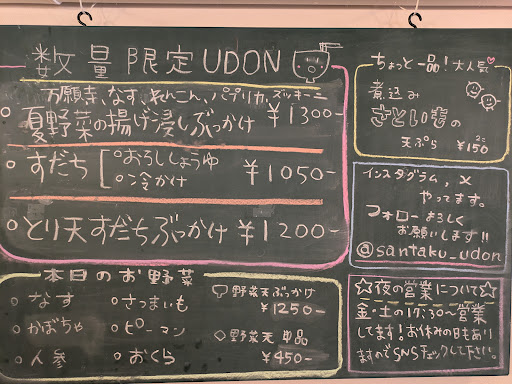 数量限定UDON
万願寺、なす、れんこん、パプリカ、ズッキーニ
○夏野菜の揚げ浸しぶっかけ ¥1300-
○すだち[○おろししょうゆ
○冷かけ
¥1050-
○とり天すだちぶっかけ ¥1200-
本日のお野菜
○なす ○さつまいも
○かぼちゃ ○ピーマン
○人参 ○おくら
野菜天ぶっかけ
¥1250-
◇野菜天 単品
¥450-
ちょっと一品!大人気
煮込み
さといもの
天ぷら 2コ ¥150
インスタグラム、X
やってます。
フォローよろしく
お願いします!!
@santaku_udon
☆夜の営業について☆
金・土の17:30〜営業
してます!お休みの日もあり
ますのでSNSチェックして下さい。